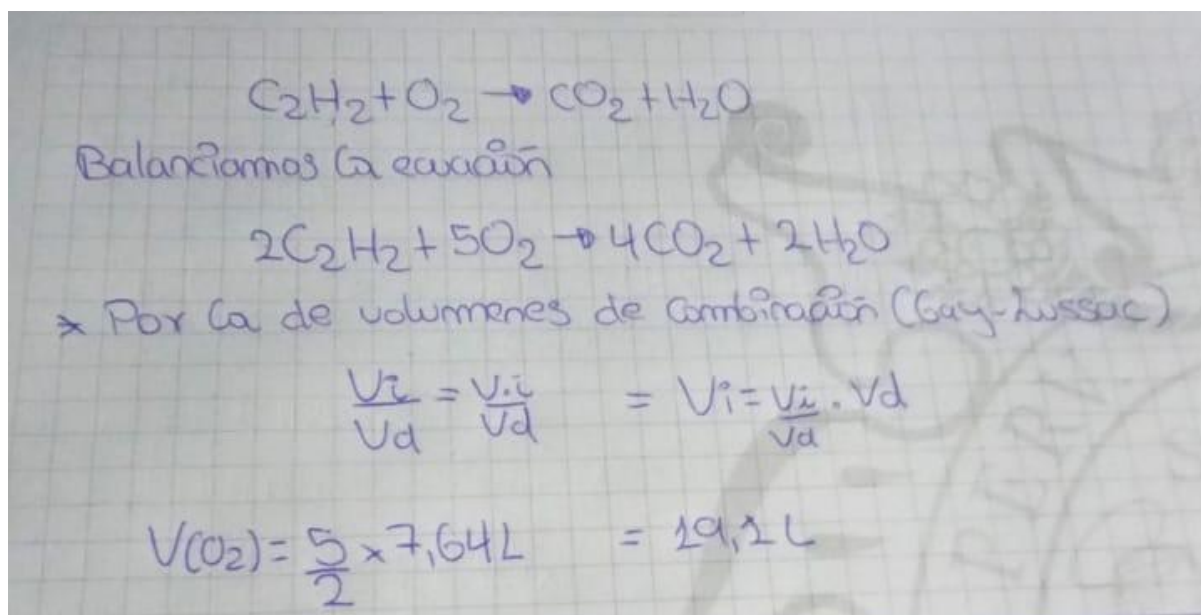 C₂H₂ + O₂ → CO₂ + H₂O
Balanciamos la ecuación
2C₂H₂ + 5O₂ → 4CO₂ + 2H₂O
* Por la de volumenes de combinación (Gay-Lussac)
Vi/Vd = V.i/Vd = Vi = Vi/Vd . Vd
V(O₂) = 5/2 x 7,64L = 19,1L